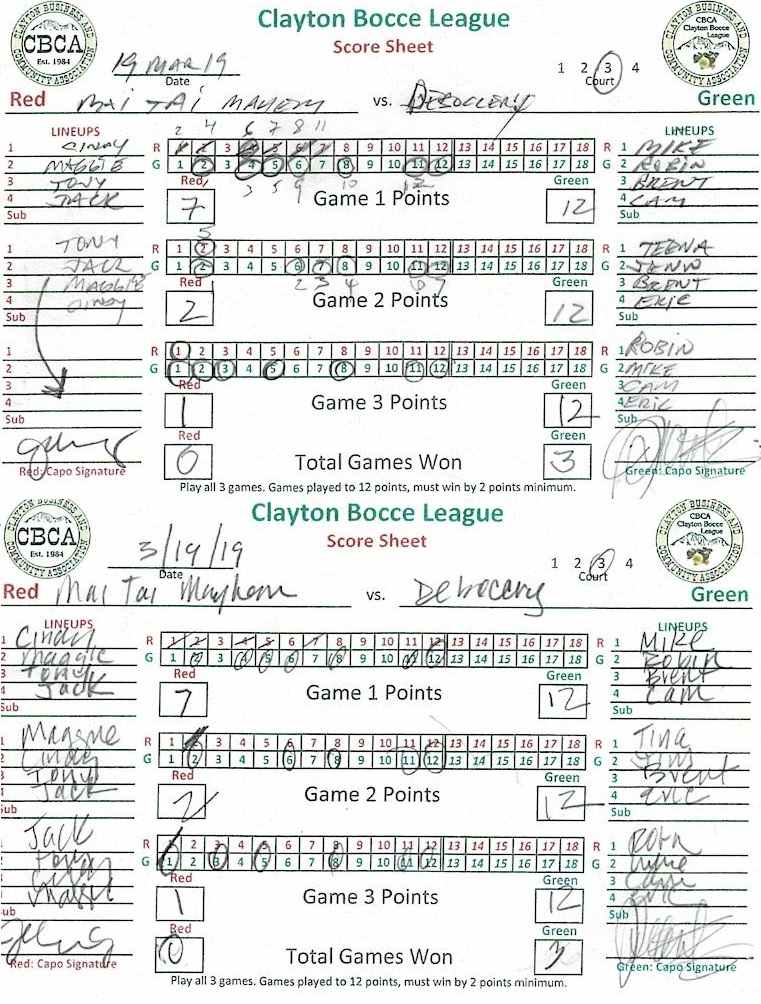 CLAYTON BUSINESS AND COMMUNITY ASSOCIATION
CBCA
Est. 1984
Clayton Bocce League
Score Sheet
CBCA
Clayton Bocce
League
19 MAR 19
Date
1 2 3 4
Court
Red Mai Tai Mayhem vs. Debocery Green
LINEUPS LINEUPS
2 4 6 7 8 11
1 Cindy R 1 2 3 4 5 6 7 8 9 10 11 12 13 14 15 16 17 18 R 1 MIKE
2 MAGGIE G 1 2 3 4 5 6 7 8 9 10 11 12 13 14 15 16 17 18 G 2 ROBIN
3 TONY Red 3 5 9 10 12 Green 3 BRENT
4 JACK 7 Game 1 Points 12 4 CAM
Sub Sub
5
1 TONY R 1 2 3 4 5 6 7 8 9 10 11 12 13 14 15 16 17 18 R 1 TEENA
2 JACK G 1 2 3 4 5 6 7 8 9 10 11 12 13 14 15 16 17 18 G 2
3 MAGGIE Red 1 2 3 4 6 7 Green 3 BRENT
4 Cindy 2 Game 2 Points 12 4 ERIC
Sub Sub
1 R 1 2 3 4 5 6 7 8 9 10 11 12 13 14 15 16 17 18 R 1 ROBIN
2 G 1 2 3 4 5 6 7 8 9 10 11 12 13 14 15 16 17 18 G 2 MIKE
3 Red Green 3 CAM
4 1 Game 3 Points 12 4 ERIC
Sub Sub
Red Green
0 Total Games Won 3
Red: Capo Signature Green: Capo Signature
Play all 3 games. Games played to 12 points, must win by 2 points minimum.
CLAYTON BUSINESS AND COMMUNITY ASSOCIATION
CBCA
Est. 1984
Clayton Bocce League
Score Sheet
CBCA
Clayton Bocce
League
3/19/19
Date
1 2 3 4
Court
Red Mai Tai Mayhem vs. Debocery Green
LINEUPS LINEUPS
1 Cindy R 1 2 3 4 5 6 7 8 9 10 11 12 13 14 15 16 17 18 R 1 Mike
2 Maggie G 1 2 3 4 5 6 7 8 9 10 11 12 13 14 15 16 17 18 G 2 Robin
3 Tony Red Green 3 Brent
4 Jack 7 Game 1 Points 12 4 Cam
Sub Sub
1 Maggie R 1 2 3 4 5 6 7 8 9 10 11 12 13 14 15 16 17 18 R 1 Tina
2 Cindy G 1 2 3 4 5 6 7 8 9 10 11 12 13 14 15 16 17 18 G 2
3 Tony Red Green 3 Brent
4 Jack 2 Game 2 Points 12 4 Eric
Sub Sub
Jack R 1 2 3 4 5 6 7 8 9 10 11 12 13 14 15 16 17 18 R 1 Robn
Tony G 1 2 3 4 5 6 7 8 9 10 11 12 13 14 15 16 17 18 G 2
Cindy Red Green 3
Maggie 1 Game 3 Points 12 4 Eric
Sub Sub
Red Green
0 Total Games Won 3
Red: Capo Signature Green: Capo Signature
Play all 3 games. Games played to 12 points, must win by 2 points minimum.